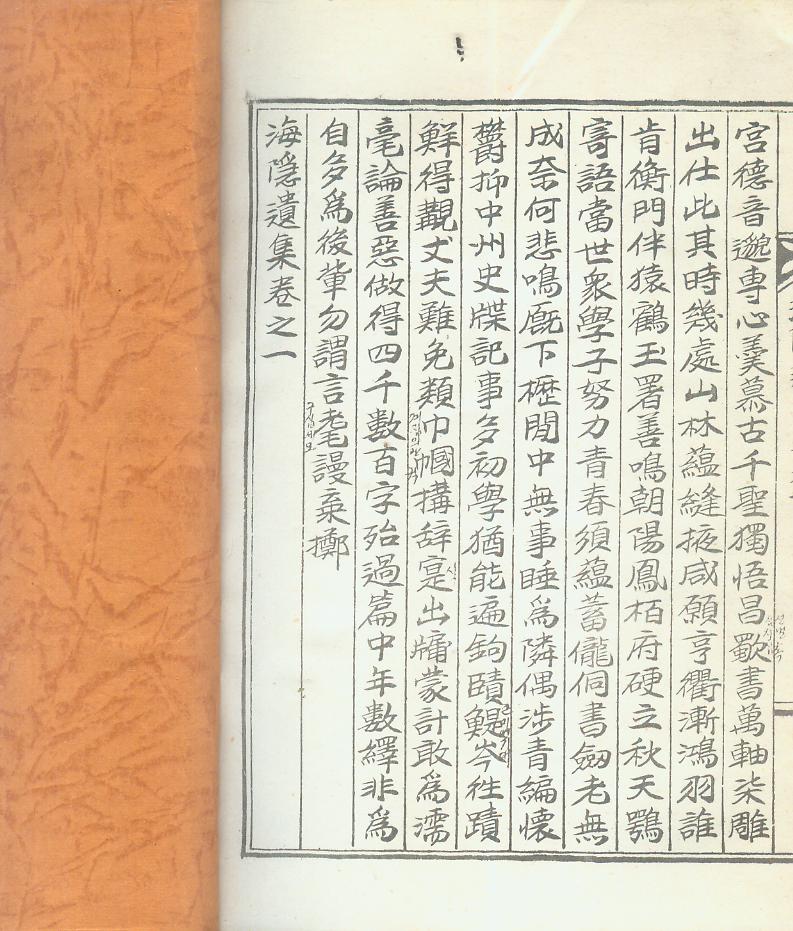 宮德音邈專心羹慕古千聖獨悟昌歜書萬軸柒雕
出仕此其時幾處山林蘊縫掖咸願亨衢漸鴻羽誰
肯衡門伴猿鶴玉署善鳴朝陽鳳栢府硬立秋天鶚
寄語當世衆學子努力青春須蘊蓄儱侗書劒老無
成奈何悲鳴厩下櫪閒中無事睡爲隣偶涉青編懷
欝抑中州史牒記事多初學猶能遍鉤賾鯷岑徃蹟
鮮得覩丈夫難免類巾幗搆辭寔出牖蒙計敢爲濡
毫論善惡做得四千數百字殆過篇中年數繹非爲
自多爲後輩勿謂言耄謾棄擲
海隱遺集卷之一